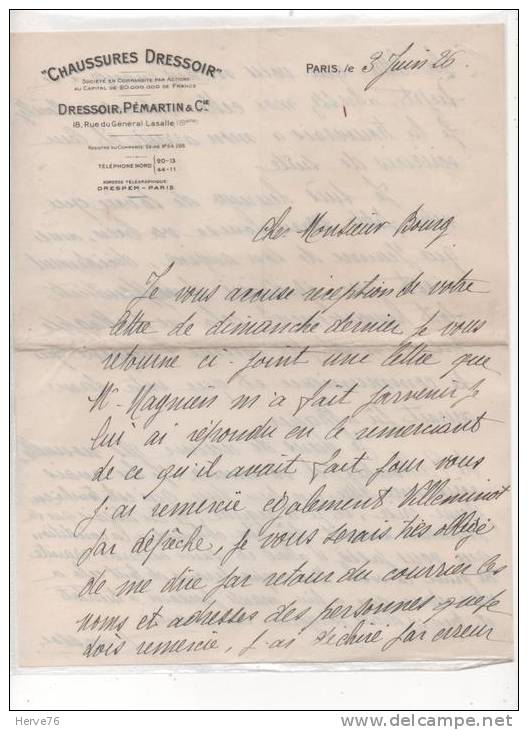 "CHAUSSURES DRESSOIR"
SOCIÉTÉ EN COMMANDITE PAR ACTIONS
AU CAPITAL DE 20.000.000 DE FRANCS
DRESSOIR, PÉMARTIN & Cie
18, Rue du Général Lasalle (19ème)
REGISTRE DU COMMERCE: SEINE Nº
TÉLÉPHONE NORD 20-13
44-11
ADRESSE TÉLÉGRAPHIQUE:
DRESPEM-PARIS
PARIS, le 3 Juin 26
Cher Monsieur Bourg
Je vous accuse réception de votre
lettre de dimanche dernier je vous
retourne ci-joint une lettre que
Mr Magnien m'a fait parvenir je
lui ai répondu en le remerciant
de ce qu'il avait fait pour vous
j'ai remercié également Villeminot
par dépêche, je vous serais très obligé
de me dire par retour du courrier les
noms et adresses des personnes que je
dois remercie, j'ai déchiré par erreur
Herve76
www.delcampe.net